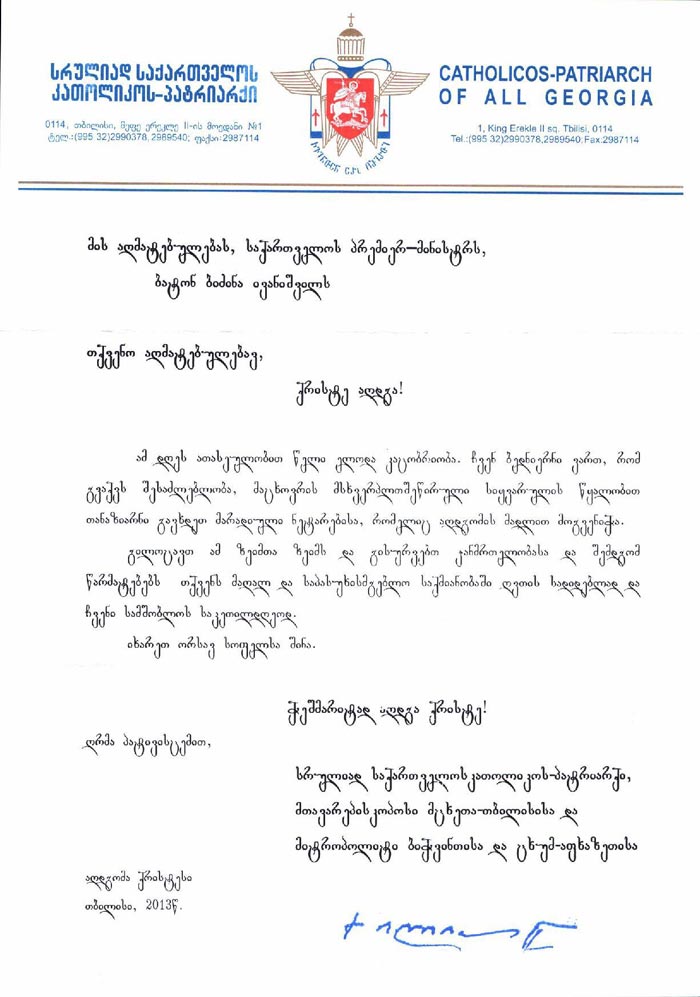 სრულიად საქართველოს
კათოლიკოს-პატრიარქი
0114, თბილისი, მეფე ერეკლე II-ის მოედანი №1
ტელ.:(995 32)2990378,2989540; ფაქსი:2987114
CATHOLICOS-PATRIARCH
OF ALL GEORGIA
1, King Erekle II sq. Tbilisi, 0114
Tel.:(995 32)2990378,2989540;Fax.2987114
მის აღმატებულებას, საქართველოს პრემიერ–მინისტრს,
ბატონ ბიძინა ივანიშვილს
თქვენო აღმატებულებავ,
ქრისტე აღდგა!
ამ დღეს ათასეულობით წელი ელოდა კაცობრიობა. ჩვენ ბედნიერნი ვართ, რომ
გვაქვს შესაძლებლობა, მაცხოვრის მსხვერპლოშეწირული სიყვარულის წყალობით
თანაზიარნი გავხდეთ მარადიული ნეტარებისა, რომელიც აღდგომის მადლით მოგვენიჭა.
გილოცავთ ამ ზეიმთა ზეიმს და გისურვებთ ჯანმრთელობასა და შემდგომ
წარმატებებს თქვენს მაღალ და საპასუხისმგებლო საქმიანობაში ღვთის სადიდებლად და
ჩვენი სამშობლოს საკეთილდღეოდ.
იხარეთ ორსავ სოფელსა შინა.
ჭეშმარიტად აღდგა ქრისტე!
ღრმა პატივისცემით,
სრულიად საქართველოს კათოლიკოს-პატრიარქი,
მთავარეპისკოპოსი მცხეთა-თბილისისა და
მიტროპოლიტი ბიჭვინთისა და ცხუმ-აფხაზეთისა
აღდგომა ქრისტესი
თბილისი, 2013წ.